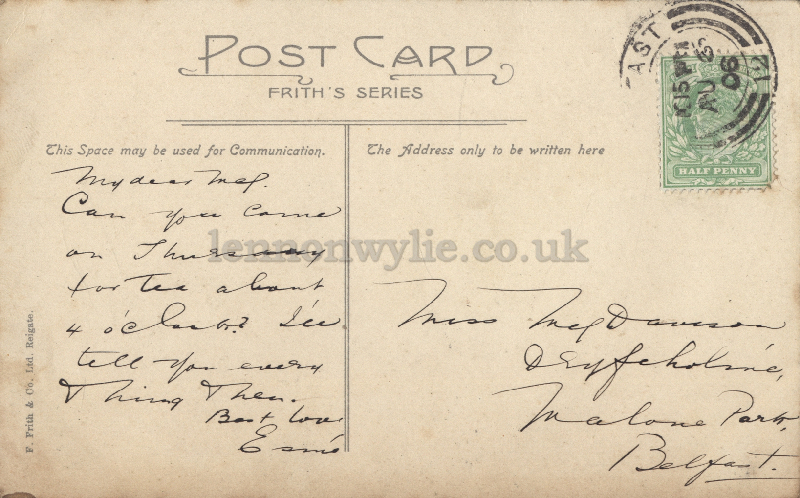 POST CARD
FRITH'S SERIES
This Space may be used for Communication.
The Address only to be written here
My dear Meg.
Can you come
on Thursday
for tea about
4 o'clock? I'll
tell you every
Thing Then.
Best love
Esmé
Miss Meg Davison
Malone Park,
Belfast.
HALF PENNY
AST
12
06
F. Frith & Co., Ltd. Reigate.
lennonwylie.co.uk